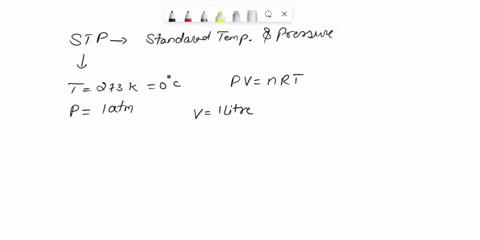 STP → Standared Temp. & Pressure
↓
T = 273 k = 0°c PV = nRT
P = 1atm V = 1Litre